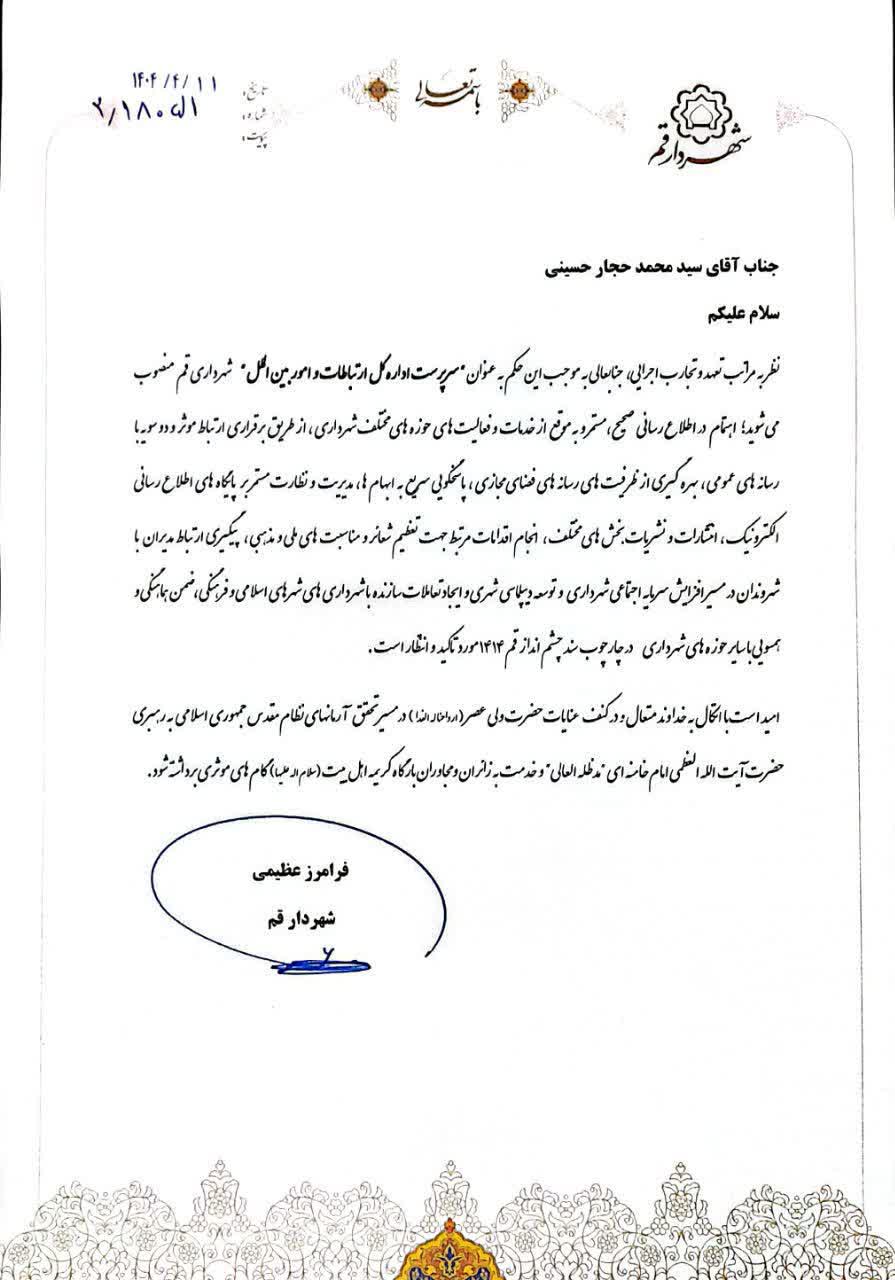 باسمه تعالی
شهردار قم
تاریخ: ۱۴۰۴/۴/۱۱
شماره:
پیوست:
جناب آقای سید محمد حجار حسینی
سلام علیکم
نظر به مراتب تعهد و تجارب اجرایی، جنابعالی به موجب این حکم به عنوان "سرپرست اداره کل ارتباطات و امور بین الملل" شهرداری قم منصوب
می شوید؛ اهتمام در اطلاع رسانی صحیح، مستمر و به موقع از خدمات و فعالیت های حوزه های مختلف شهرداری، از طریق برقراری ارتباط موثر و دو سویه با
رسانه های عمومی، بهره گیری از ظرفیت های رسانه های فضای مجازی، پاسخگویی سریع به ابهام ها، مدیریت و نظارت مستمر بر پایگاه های اطلاع رسانی
الکترونیک، انتشارات و نشریات بخش های مختلف، انجام اقدامات مرتبط جهت تعظیم شعائر و مناسبت های ملی و مذهبی، پیگیری ارتباط مدیران با
شهروندان در مسیر افزایش سرمایه اجتماعی شهرداری و توسعه دیپلماسی شهری و ایجاد تعاملات سازنده با شهرداری های شهرهای اسلامی و فرهنگی، ضمن هماهنگی و
همسویی با سایر حوزه های شهرداری در چارچوب سند چشم انداز قم ۱۴۱۴ مورد تاکید و انتظار است.
امید است با اتکال به خداوند متعال و در کنف عنایات حضرت ولی عصر (ارواحنا له الفدا) در مسیر تحقق آرمانهای نظام مقدس جمهوری اسلامی به رهبری
حضرت آیت الله العظمی امام خامنه ای "مدظله العالی" و خدمت به زائران و مجاوران بارگاه کریمه اهل بیت (سلام اله علیها) گام های موثری برداشته شود.
فرامرز عظیمی
شهردار قم